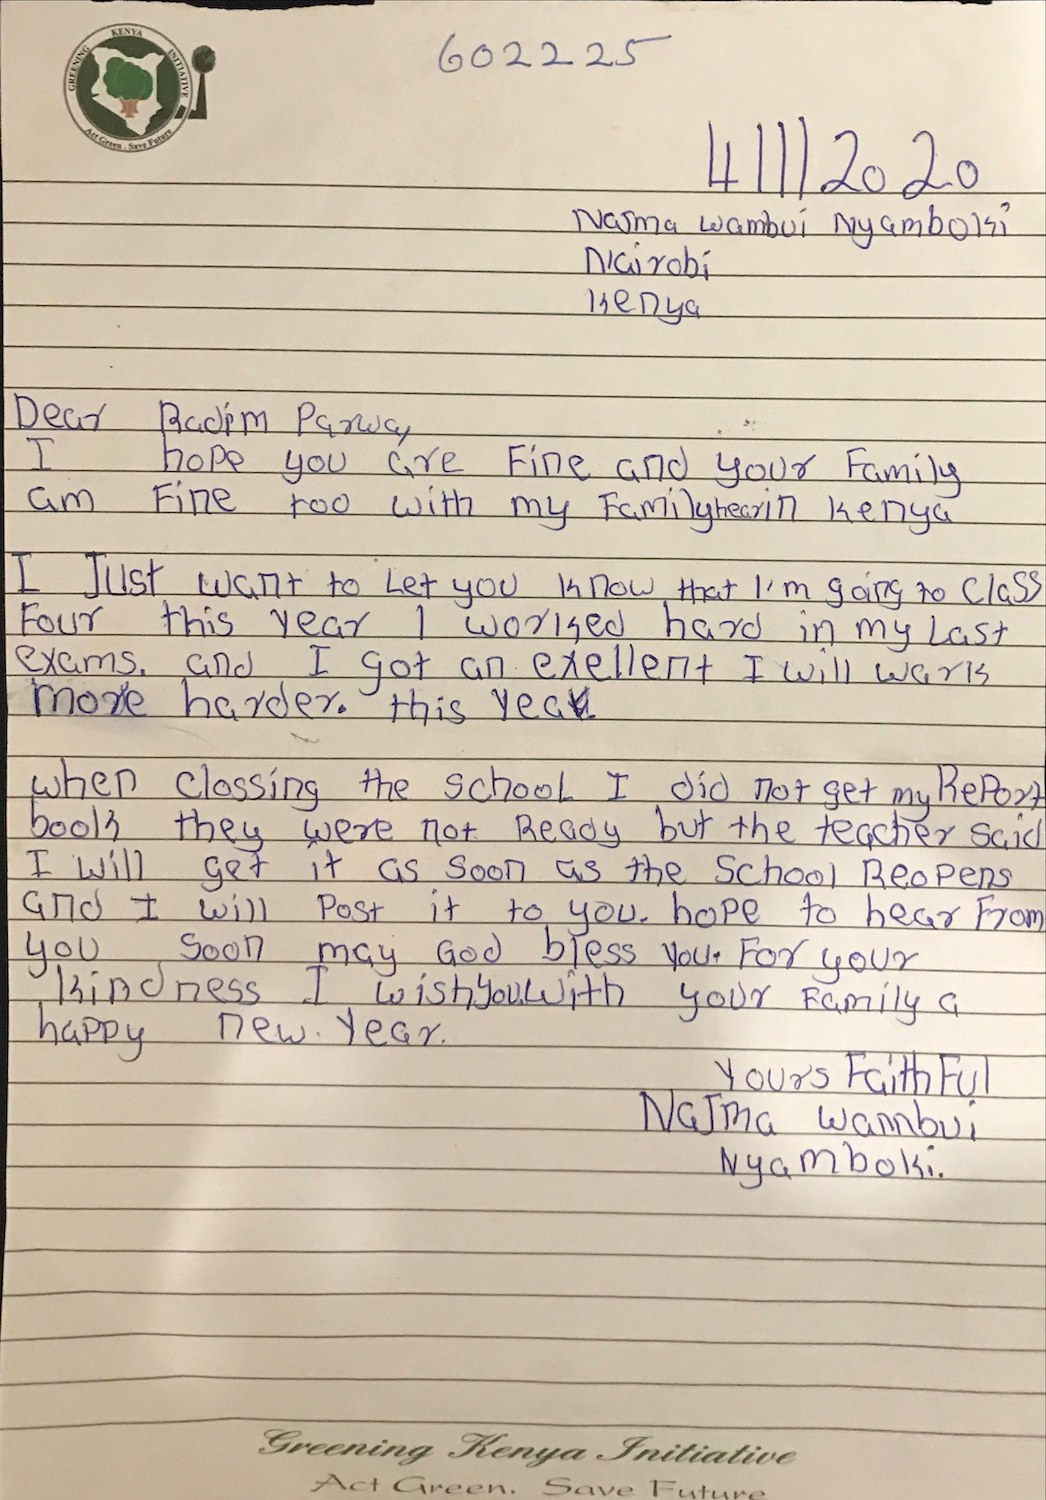 GREENING KENYA INITIATIVE
Act Green. Save Future
602225
4/1/2020
Najma Wambui Nyamboki
Nairobi
Kenya
Dear Radim Parwa,
I hope you are Fine and your Family
am Fine too with my Familyhearin Kenya
I Just want to Let you Know that I'm going to Class
Four this year I worked hard in my Last
exams. and I got an exellent I will wark
more harder. this year
when Clossing the school I did not get my RePort
book they were not Ready but the teacher said
I will get it as soon as the School Reopens
and I will Post it to you. hope to hear From
you soon may God bless you. For your
kindness I wishyouwith your Family a
happy new. year.
Yours FaithFul
Najma Wambui
Nyamboki.
Greening Kenya Initiative
Act Green. Save Future